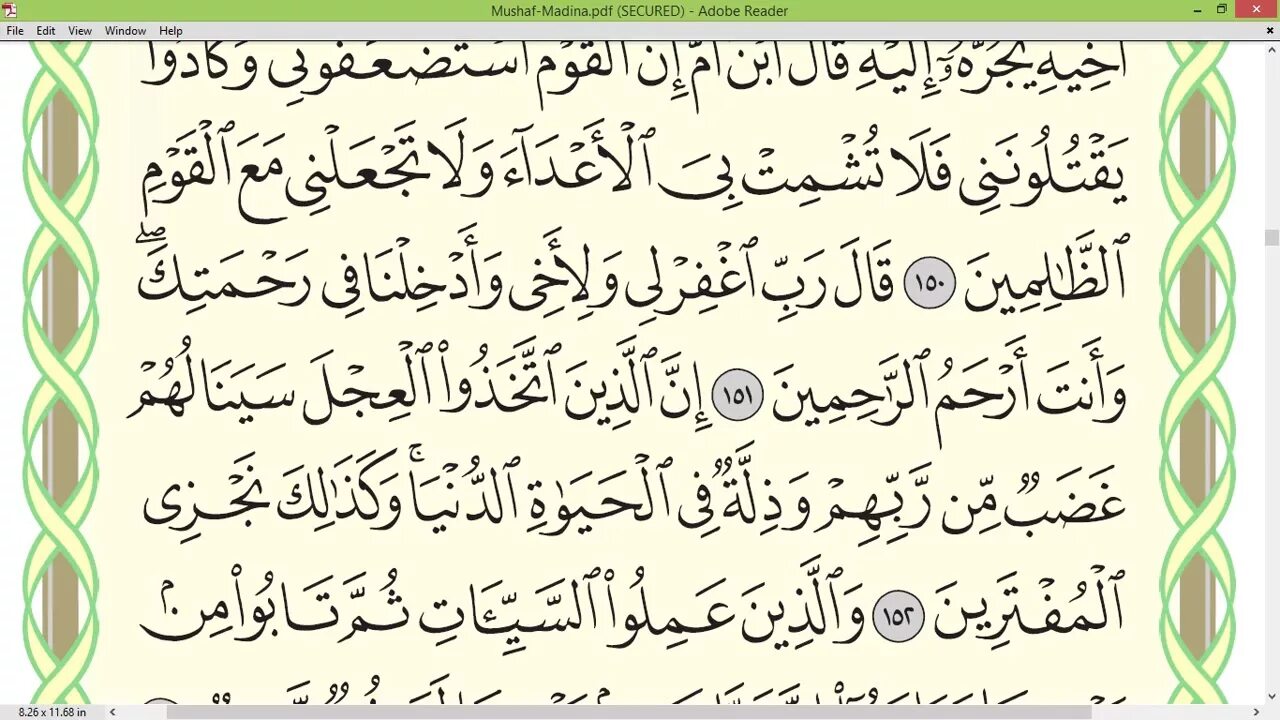 Mushaf-Madina.pdf (SECURED) - Adobe Reader
File Edit View Window Help
أَخِيهِ يَجُرُّهُۥٓ إِلَيۡهِۚ قَالَ ٱبۡنَ أُمَّ إِنَّ ٱلۡقَوۡمَ ٱسۡتَضۡعَفُونِي وَكَادُواْ
يَقۡتُلُونَنِي فَلَا تُشۡمِتۡ بِيَ ٱلۡأَعۡدَآءَ وَلَا تَجۡعَلۡنِي مَعَ ٱلۡقَوۡمِ
ٱلظَّٰلِمِينَ ١٥٠ قَالَ رَبِّ ٱغۡفِرۡ لِي وَلِأَخِي وَأَدۡخِلۡنَا فِي رَحۡمَتِكَۖ
وَأَنتَ أَرۡحَمُ ٱلرَّٰحِمِينَ ١٥١ إِنَّ ٱلَّذِينَ ٱتَّخَذُواْ ٱلۡعِجۡلَ سَيَنَالُهُمۡ
غَضَبٞ مِّن رَّبِّهِمۡ وَذِلَّةٞ فِي ٱلۡحَيَوٰةِ ٱلدُّنۡيَاۚ وَكَذَٰلِكَ نَجۡزِي
ٱلۡمُفۡتَرِينَ ١٥٢ وَٱلَّذِينَ عَمِلُواْ ٱلسَّيِّـَٔاتِ ثُمَّ تَابُواْ مِنۢ
8.26 x 11.68 in